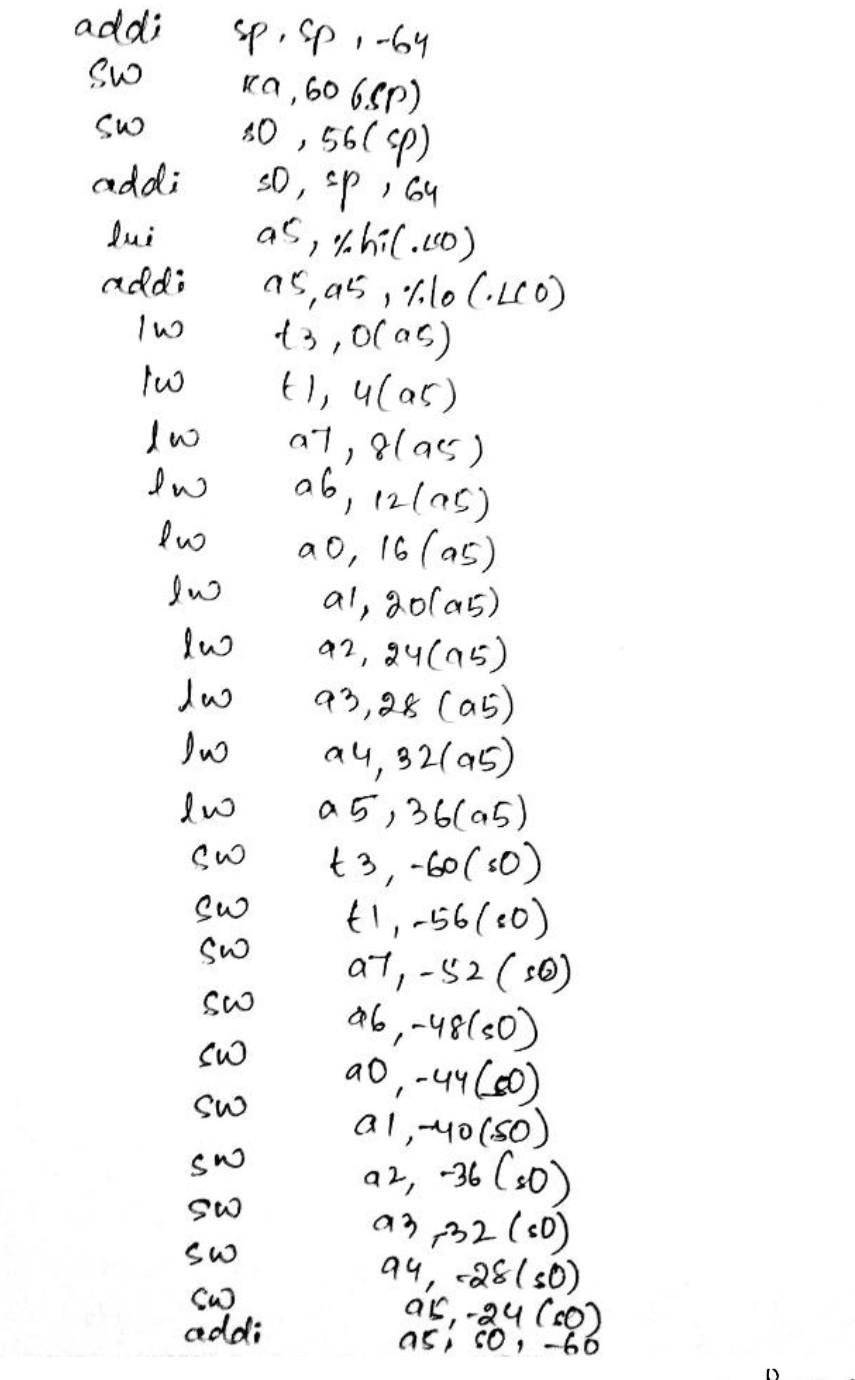 addi sp, sp, -64
sw ra, 60(sp)
sw s0, 56(sp)
addi s0, sp, 64
lui a5, %hi(.LC0)
addi a5,a5, %lo(.LC0)
lw t3, 0(a5)
lw t1, 4(a5)
lw a7, 8(a5)
lw a6, 12(a5)
lw a0, 16(a5)
lw a1, 20(a5)
lw a2, 24(a5)
lw a3,28 (a5)
lw a4, 32(a5)
lw a5, 36(a5)
sw t3, -60(s0)
sw t1, -56(s0)
sw a7, -52(s0)
sw a6, -48(s0)
sw a0, -44(s0)
sw a1, -40(s0)
sw a2, -36(s0)
sw a3, -32(s0)
sw a4, -28(s0)
sw a5, -24(s0)
addi a5, s0, -60